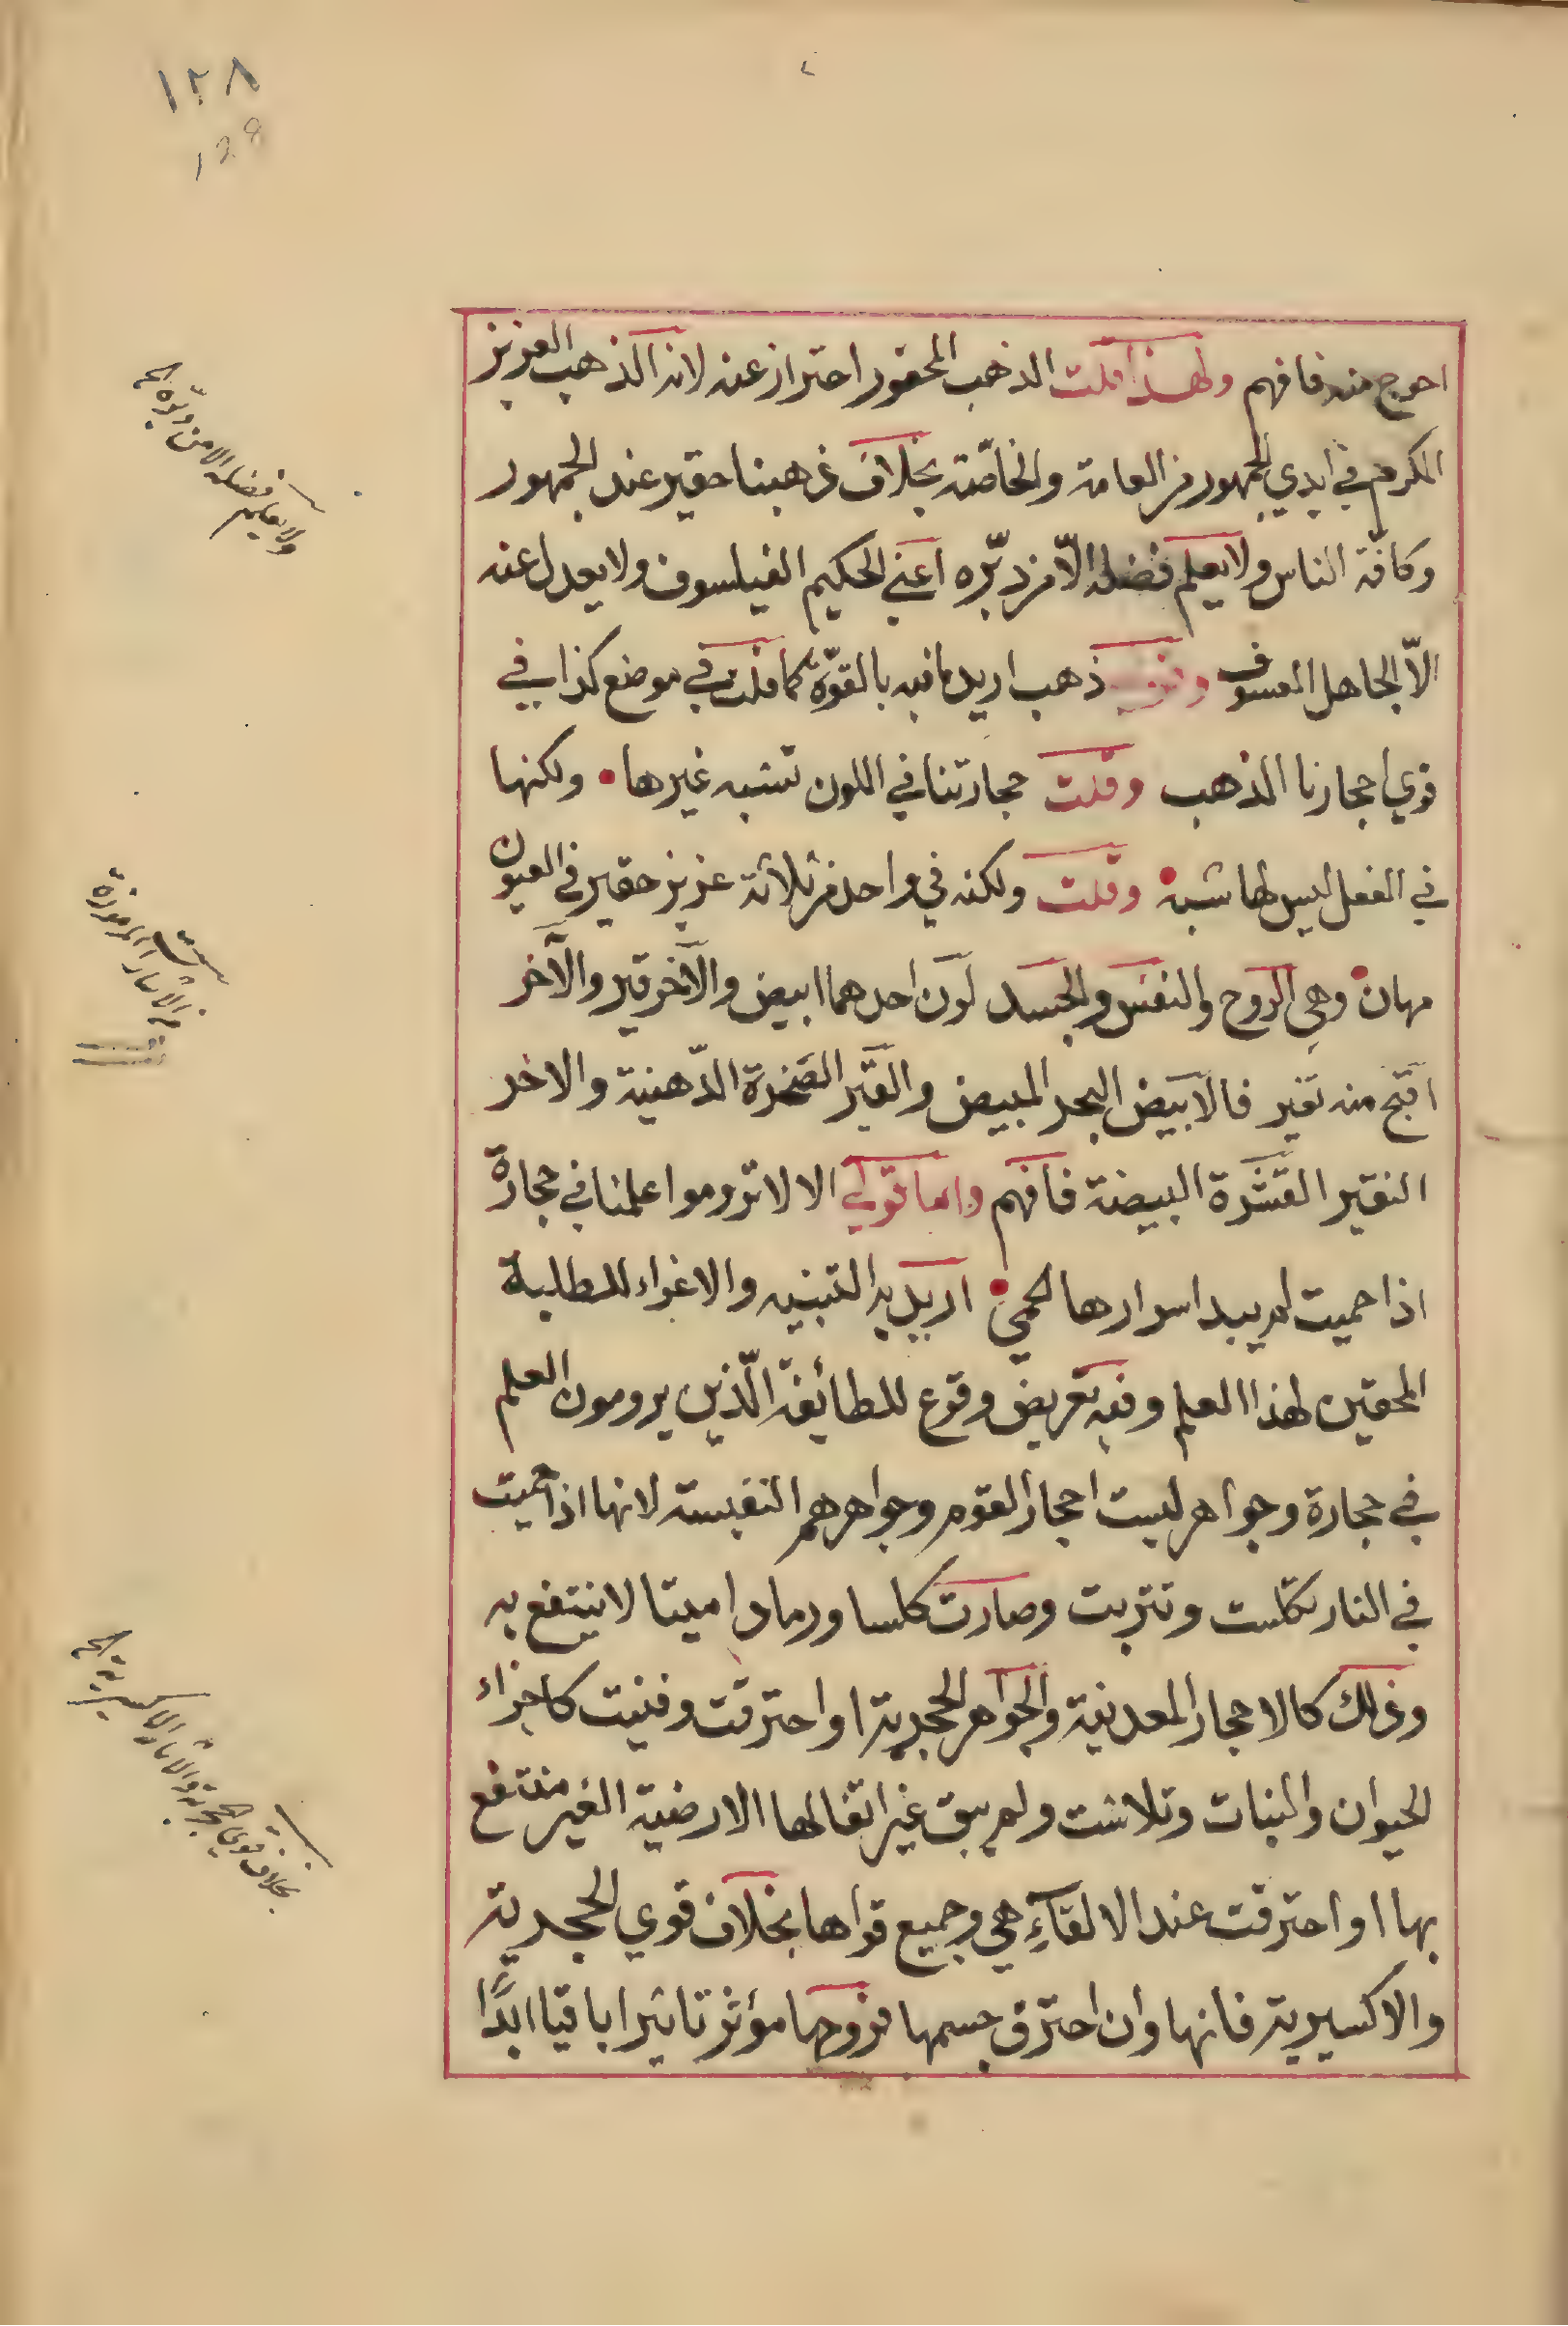 ١٢٨
128
احوج منه فافهم ولهذا قلت الذهب المحقور احتراز عنه لانه الذهب العزيز
المكرم في ايدي الجمهور من العامة والخاصّة بخلاف ذهبنا حقير عند الجمهور
وكافّة الناس ولا يعلم فضله الّا من دبّره اعني الحكيم الفيلسوف ولا يعدل عنه
الّا الجاهل ذهب اريد مافيه بالقوّة كما قلت في موضع كذا في
قوي احجارنا الذهب وقلت حجارتنا في اللون تشبه غيرها ولكنها
في الفعل ليس لها شبه وقلت ولكنه في واحد من ثلاثة عزيز حقير في العيون
مهان وهي الروح والنفس والجسد لون احدهما ابيض والآخر قير والآخر
اقبح منه نقير فالابيض البحر المبيض والقير الصخرة الدّهنية والاخر
النقير القشرة البيضة فافهم واما قولي الا لا تروموا علمنا في حجارة
اذا حميت لم يبد اسرارها الحمي اريد به التنبيه والاغراء للطلبة
المحقين لهذا العلم وفيه تعريض وقوع للطائفة الّذين يرومون العلم
في حجارة وجواهر ليست احجار القوم وجواهرهم النفيسة لانها اذا حميت
في النار تكلّست وتتربت وصارت كلسا ورمادا ميتا لا ينتفع به
وذلك كالاحجار المعدنية والجواهر الحجرية او احترقت وفنيت كاجزاء
الحيوان والنبات وتلاشت ولم يبق غير اثقالها الارضية الغير منتفع
بها او احترقت عند الالقآء هي وجميع قواها بخلاف قوي الحجرية
والاكسيرية فانها وان احترق جسمها فروحها مؤثر تاثيرا باقيا ابدًا
ولا يعلم فضله الا من دبّره الخ
بخلاف قوي الحجرية والاكسيرية الخ